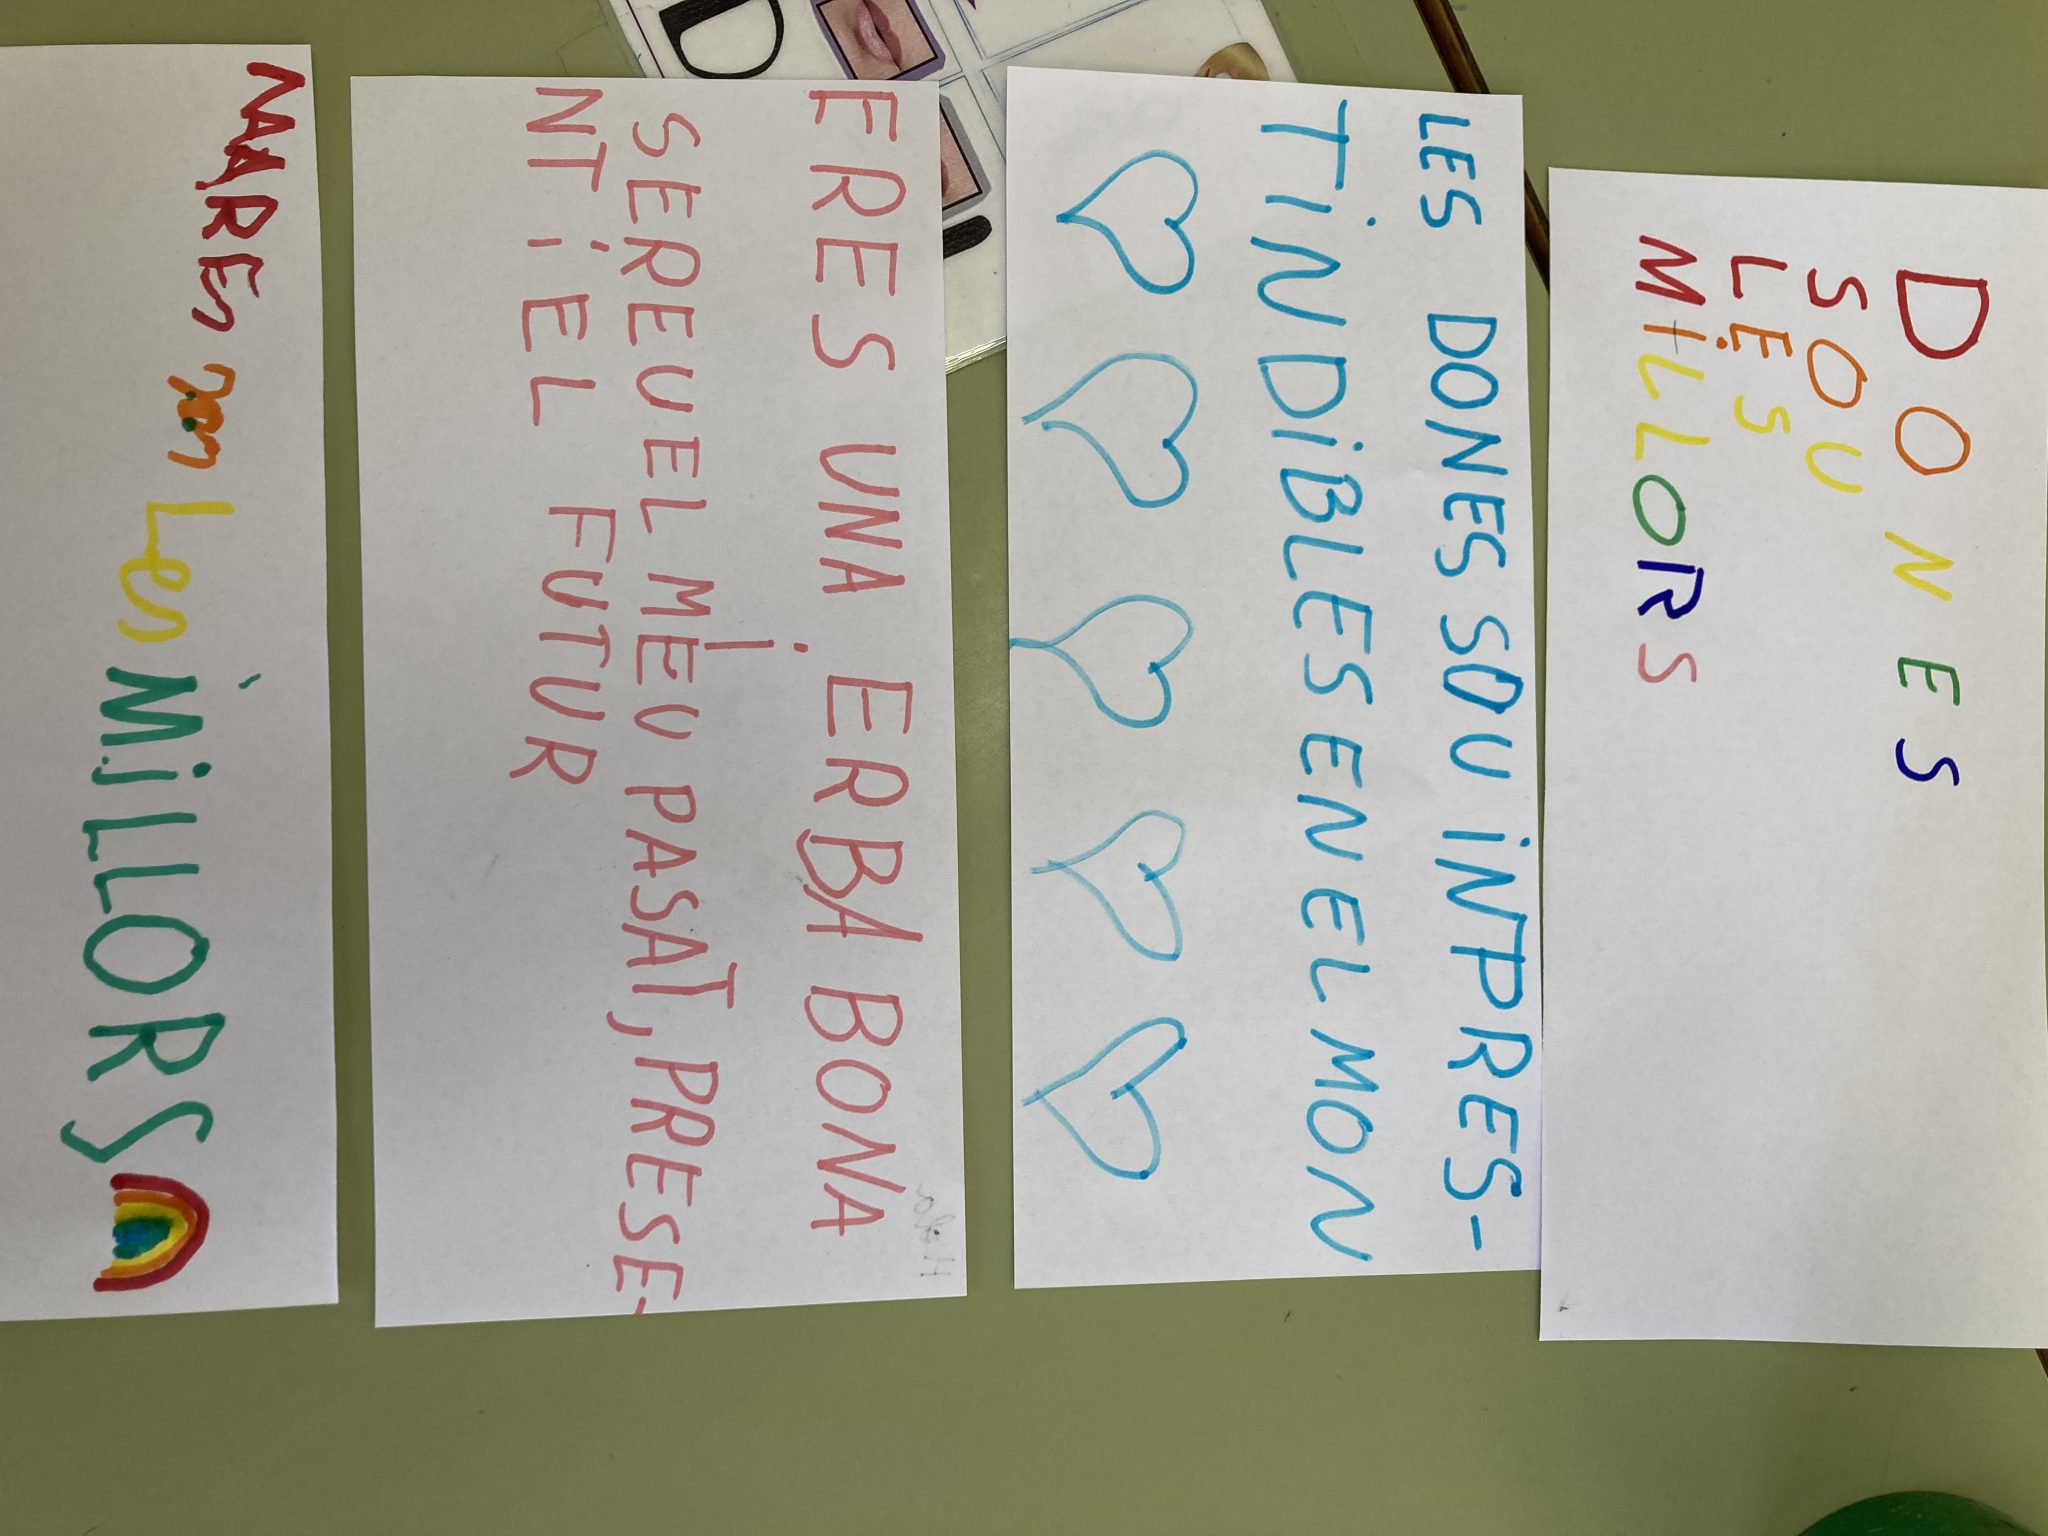 DONES
SOU
LES
MiLLORS
LES DONES SOU iNPRES-
TiNDiBLES EN EL MON
ERES UNA ERBA BONA
SEREU EL MEU PASAT, PRESE-
NT i EL FUTUR
MARES Les MiLLORS
D